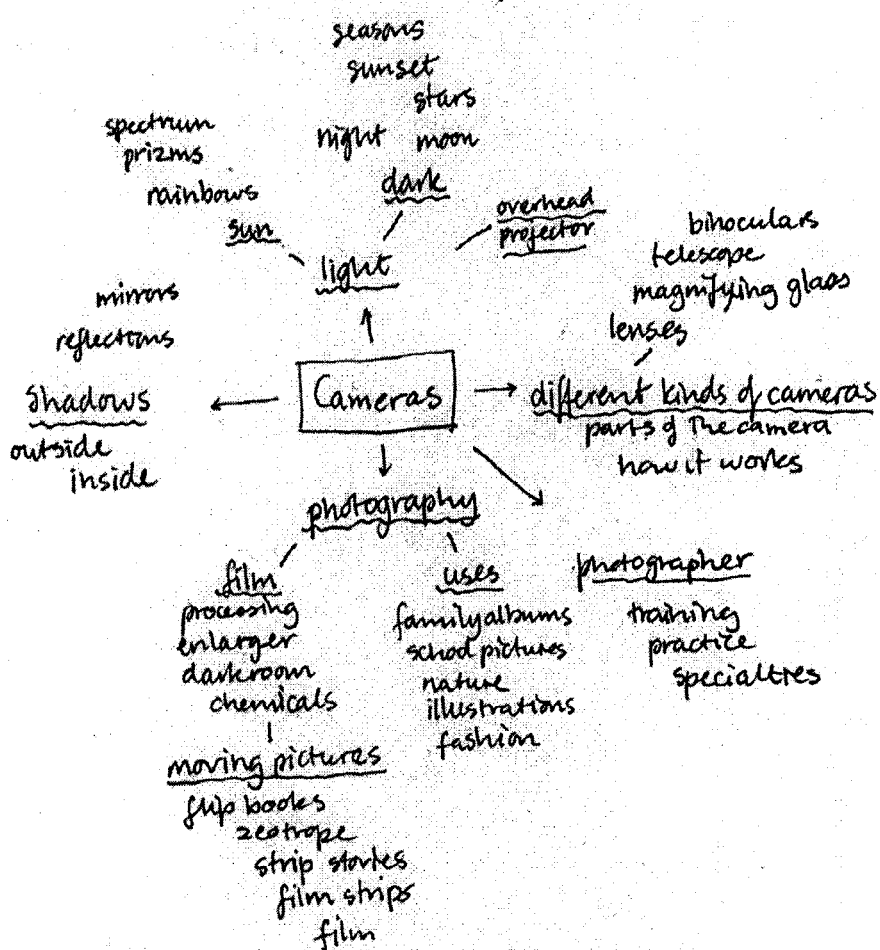 seasons
sunset
stars
night moon
dark
spectrum
prizms
rainbows
sun
overhead
projector
light
mirrors
reflections
shadows
outside
inside
Cameras
binoculars
telescope
magnifying glass
lenses
different kinds of cameras
parts of the camera
how it works
photography
film
processing
enlarger
darkroom
chemicals
moving pictures
flip books
zeotrope
strip stories
film strips
film
uses
family albums
school pictures
nature
illustrations
fashion
photographer
training
practice
specialties